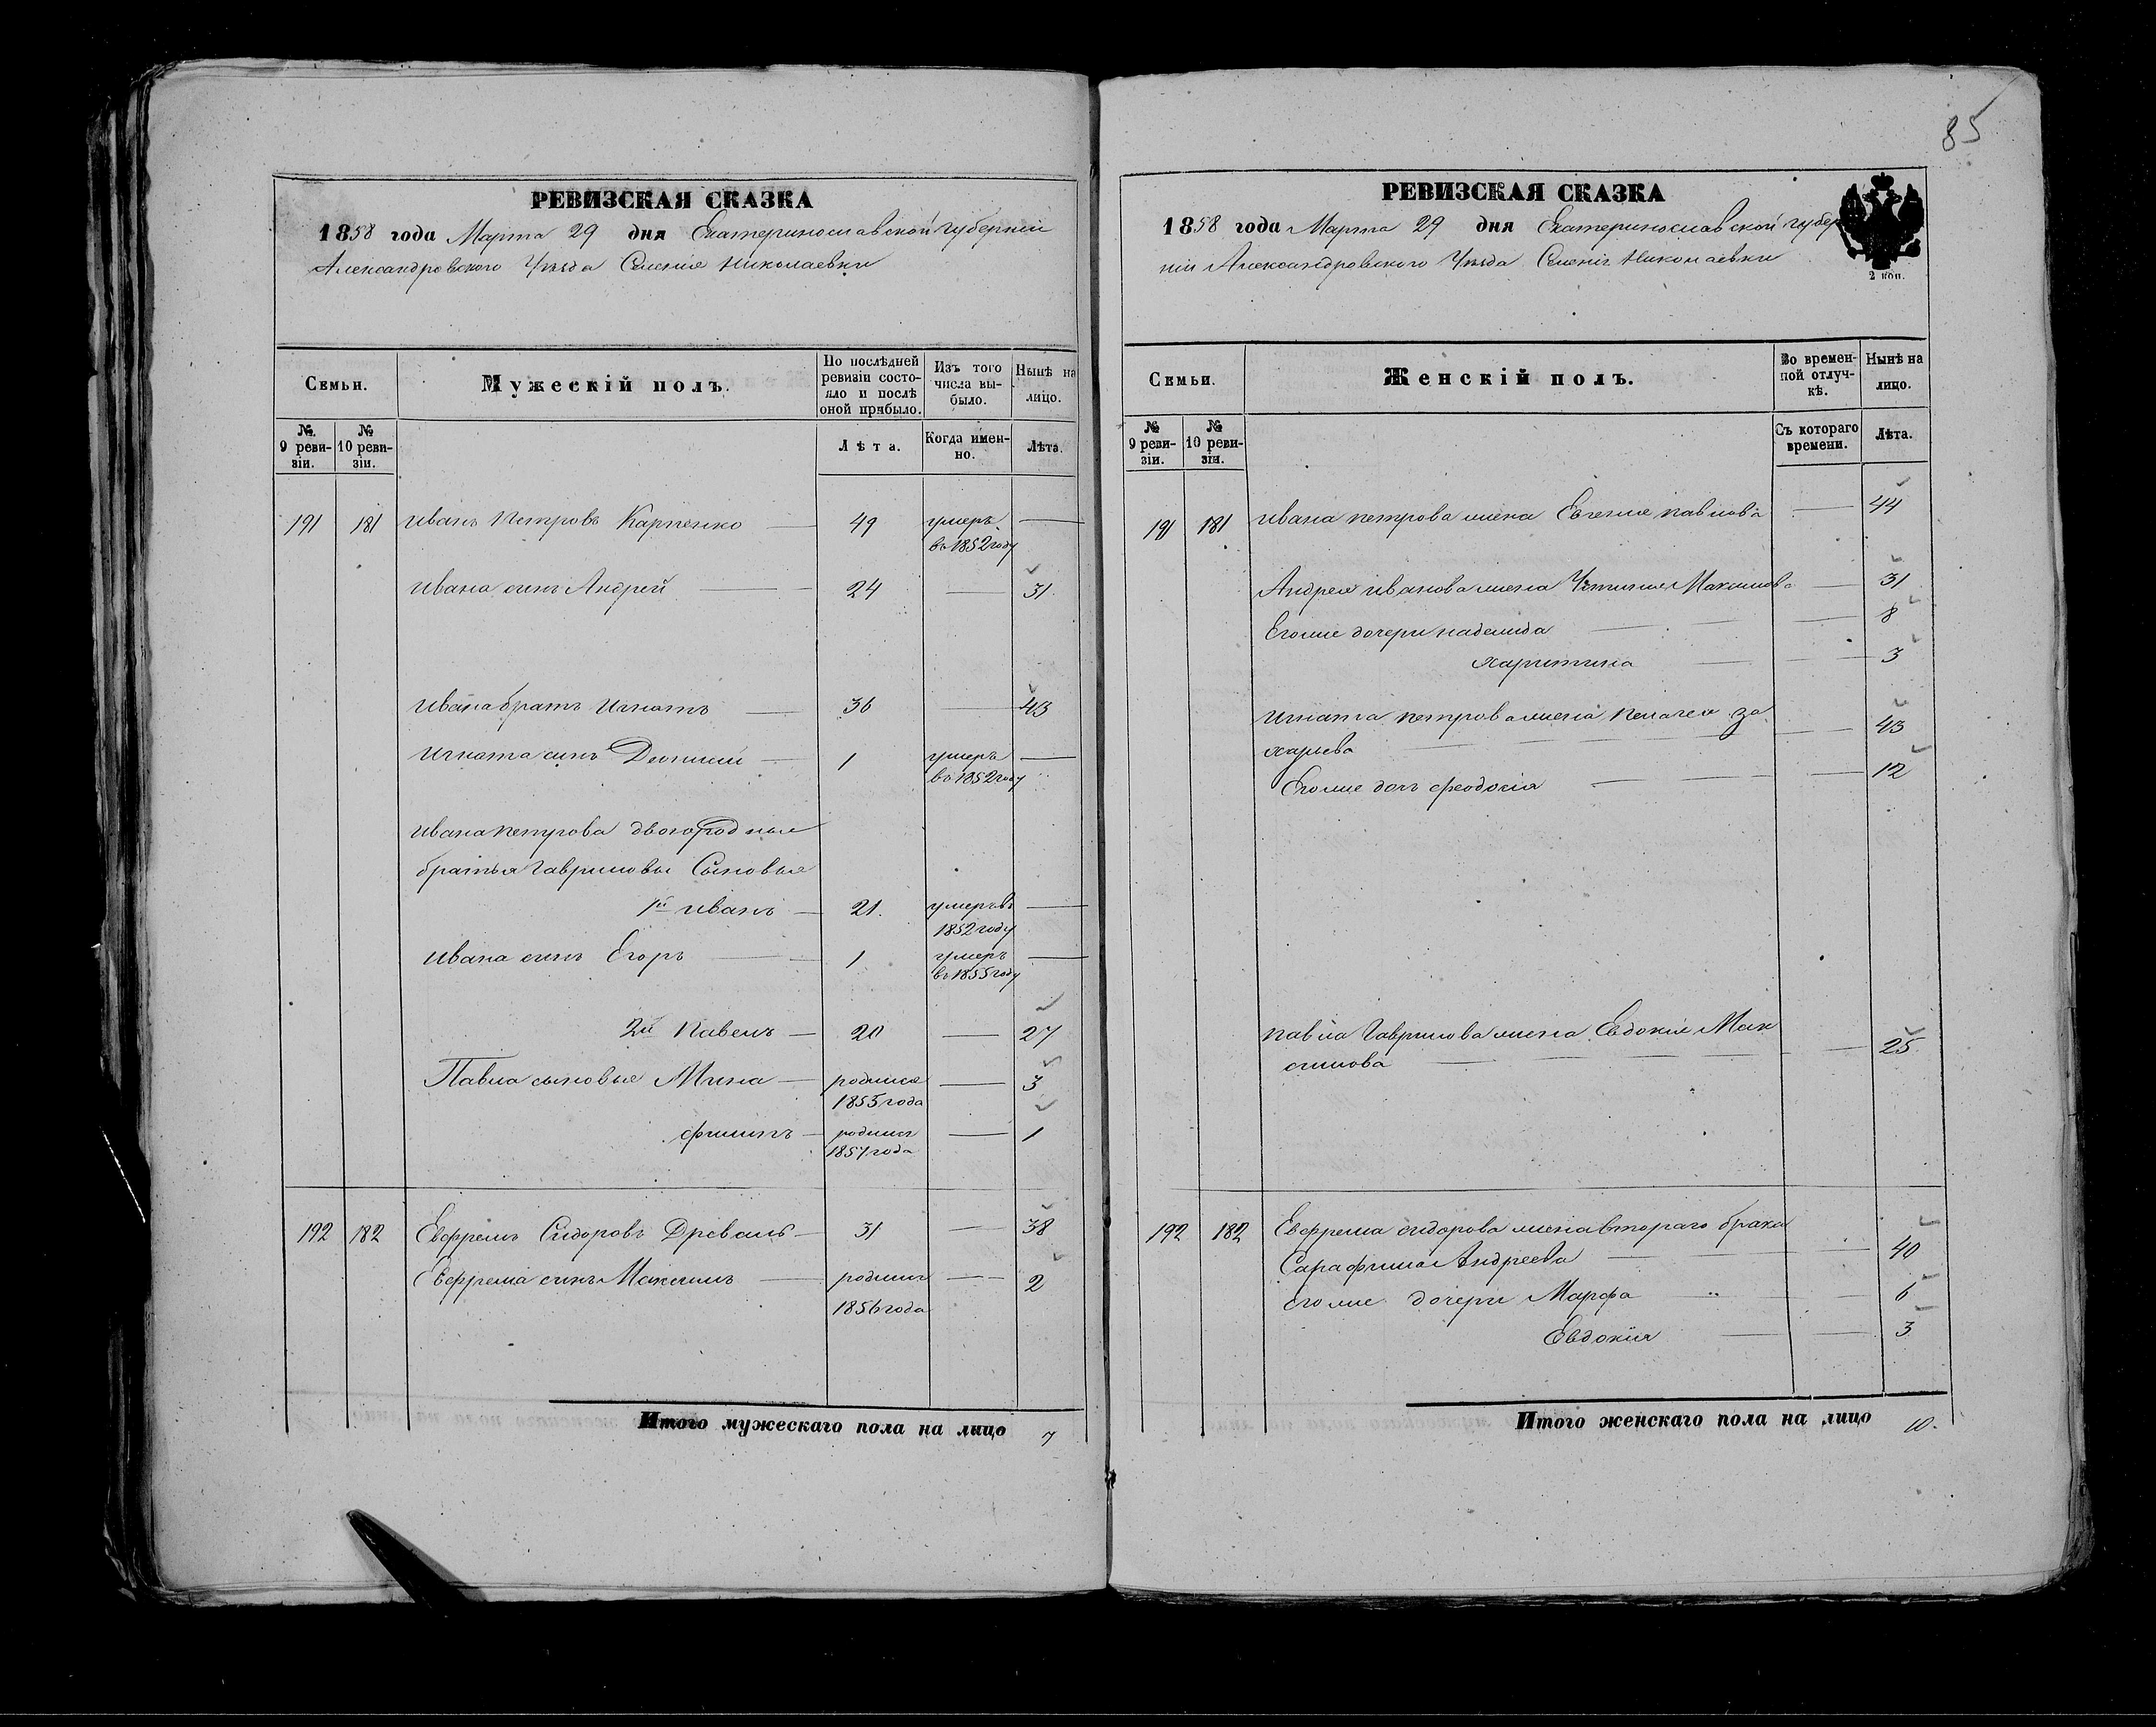 85
РЕВИЗСКАЯ СКАЗКА
1858 года Марта 29 дня Екатеринославской губерніи
Александровского Уѣзда Селенія Николаевки
Семьи.
Мужескій полъ.
По послѣдней ревизіи состояло и послѣ оной прибыло.
Изъ того числа выбыло.
Нынѣ на лицо.
№ 9 ревизіи.
№ 10 ревизіи.
Лѣта.
Когда именно.
Лѣта.
191 181 Иванъ Петровъ Карпенко 49 умеръ —
въ 1852 году
Ивана сынъ Андрей 24 — 31
Ивана братъ Игнатъ 36 — 43
Игната сынъ 1 умеръ —
въ 1852 году
Ивана Петрова двогородные
братья Гавриловы Сыновья
1й Иванъ — 21. умеръ въ —
1852 году
Ивана сынъ Егоръ 1 умеръ —
въ 1855 году
2й Павелъ — 20 — 27
Павла сыновья Мина — родился — 3
1855 года
Филипъ — родился — 1
1857 года
192 182 Евфремъ Сидоровъ Древаль 31 — 38
Евфрема сынъ Максимъ родился — 2
1856 года
Итого мужескаго пола на лицо 7
РЕВИЗСКАЯ СКАЗКА
1858 года Марта 29 дня Екатеринославской губер
ніи Александровского Уѣзда Селенія Николаевки
2 коп.
Семьи.
Женскій полъ.
Во временной отлучкѣ.
Нынѣ на лицо.
№ 9 ревизіи.
№ 10 ревизіи.
Съ котораго времени.
Лѣта.
191 181 Ивана Петрова жена Евгенія Павлова — 44
Андрея Иванова жена Устинья Максимова — 31
Егоже дочери Надежда — 8
Харитина — 3
Игната Петрова жена Пелагея За
харьева — 43
Егоже дочь Феодосія — 12
Павла Гаврилова жена Евдокія Мак
симова — 25
192 182 Евфрема Сидорова жена втораго брака
Сарафима Андреева — 40
Егоже дочери Марфа — 6
Евдокія — 3
Итого женскаго пола на лицо 10.